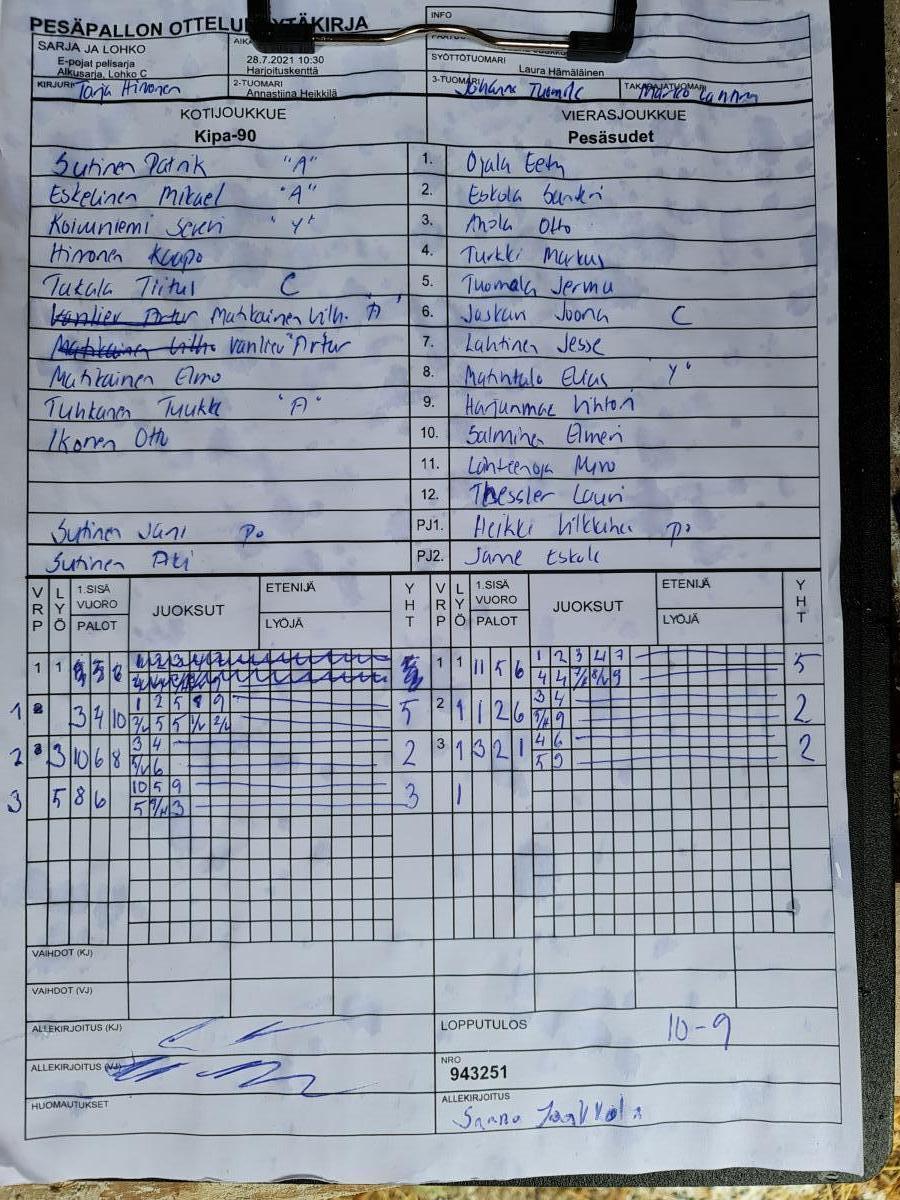 PESÄPALLON OTTELU
INFO
SARJA JA LOHKO
E-pojat pelisarja
Alkusarja, Lohko C
28.7.2021 10:30
Harjoituskenttä
SYÖTTÖTUOMARI
Laura Hämäläinen
KIRJURI Tarja Hironen
2-TUOMARI
Annastiina Heikkilä
3-TUOMARI
KOTIJOUKKUE
Kipa-90
VIERASJOUKKUE
Pesäsudet
Sutinen Patrik "A" 1. Ojala Eetu
Eskelinen Mikael "A" 2. Eskola Santeri
Koivuniemi Severi "Y" 3. Ahola Otto
Hironen Kaapo 4. Turkki Markus
Takala Tiitus C 5. Tuomala Jermu
Vanlier Artur Matikainen Vilh. "A" 6. Jaskari Joona C
Matikainen Vilho Vanlier Artur 7. Lahtinen Jesse
Matikainen Elmo 8. Elias "Y"
Tuhkanen Tuukka "A" 9. Harjunmaa Vihtori
Ikonen Otto 10. Salminen Elmeri
11. Lähteenoja Myro
12. Thessler Lauri
Sutinen Jani p. PJ1. Heikki p.
Sutinen Aki PJ2. Janne Eskola
VRP LYÖ 1.SISÄ VUORO PALOT JUOKSUT ETENIJÄ LYÖJÄ YHT VRP LYÖ 1.SISÄ VUORO PALOT JUOKSUT ETENIJÄ LYÖJÄ YHT
1 1 1 1 11 5 6 1 2 3 4 7 5
1 3 4 10 1 2 5 9 5 2 1 1 2 6 3 4 2
2 3 10 6 8 3 4 2 3 1 3 2 1 4 6 2
5 9
3 5 8 6 10 5 9 3 1
VAIHDOT (KJ)
VAIHDOT (VJ)
ALLEKIRJOITUS (KJ)
LOPPUTULOS 10-9
ALLEKIRJOITUS (VJ)
NRO
943251
HUOMAUTUKSET
ALLEKIRJOITUS